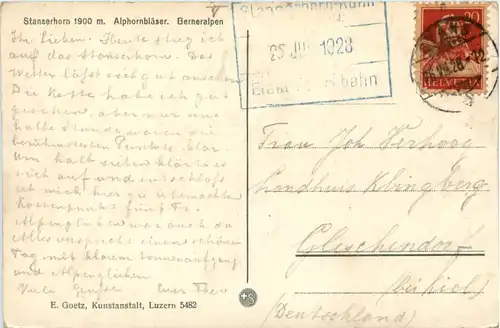 Stanserhorn 1900 m. Alphornbläser. Berneralpen
Ihr Lieben. Heute stieg ich
auf das Stanserhorn. Das
Wetter lässt sich gut ansehen
Die Kette habe ich gut
gesehen, aber nur eine
halbe Stunde waren die
berühmtesten Punkte klar.
Um halb sieben klärte es
sich auf und entschloss
ich mich hier zu übernachten
Kostenpunkt fünf Fr.
Alpenglühen war auch da
Alles verspricht einen schönen
Tag mit klarem Sonnenaufgang
und Alpenglühen.
Viele Grüsse Euer Theo
E. Goetz, Kunstanstalt, Luzern 5482
Stanserhorn-Bahn
25 JUL 1928
bahn
20
HELVETIA
Frau Joh. Verhoog
Landhuis Klingberg
Gleschendorf
bei Kiel
(Deutschland)